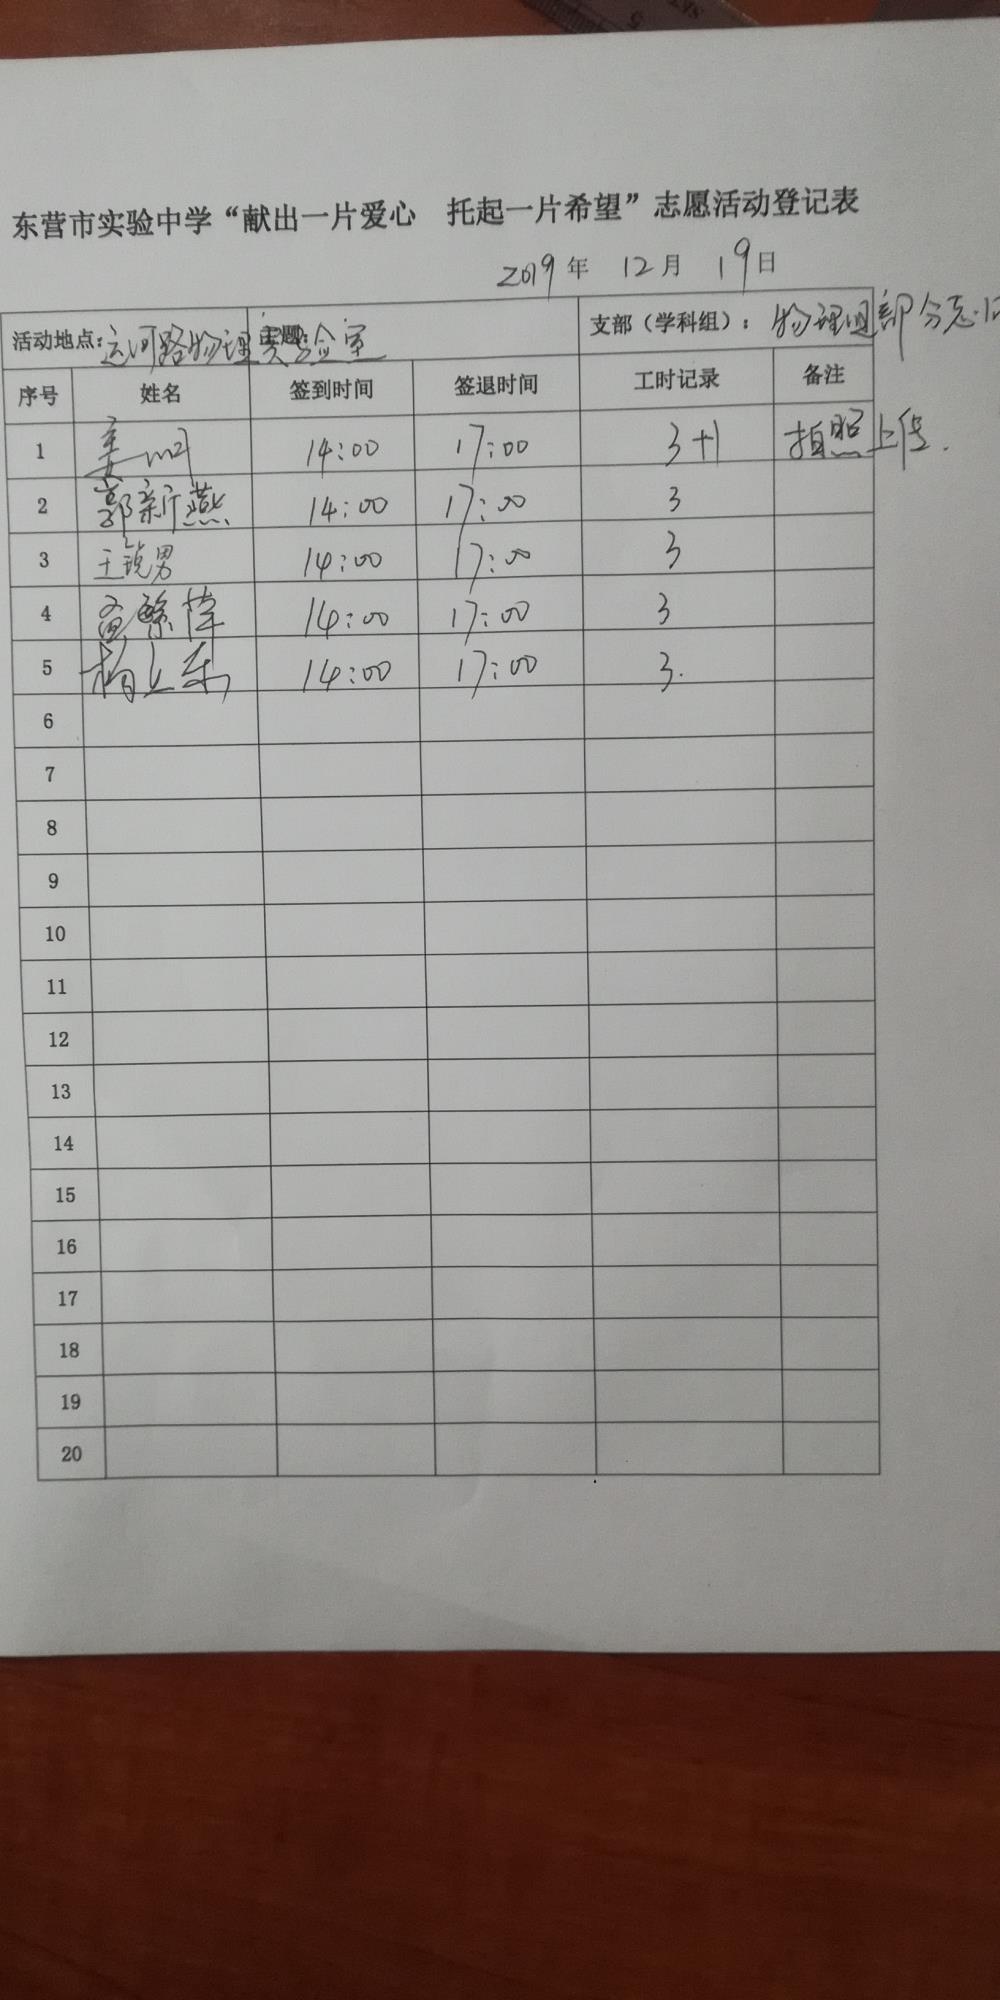 东营市实验中学“献出一片爱心 托起一片希望”志愿活动登记表
2019年 12月 19日
活动地点：运河路物理实验室 主题： 支部（学科组）：物理组部分志
序号 姓名 签到时间 签退时间 工时记录 备注
1 姜 14:00 17:00 3+1 拍照上传.
2 郭新燕 14:00 17:00 3
3 王锐男 14:00 17:00 3
4 14:00 17:00 3
5 14:00 17:00 3.
6
7
8
9
10
11
12
13
14
15
16
17
18
19
20